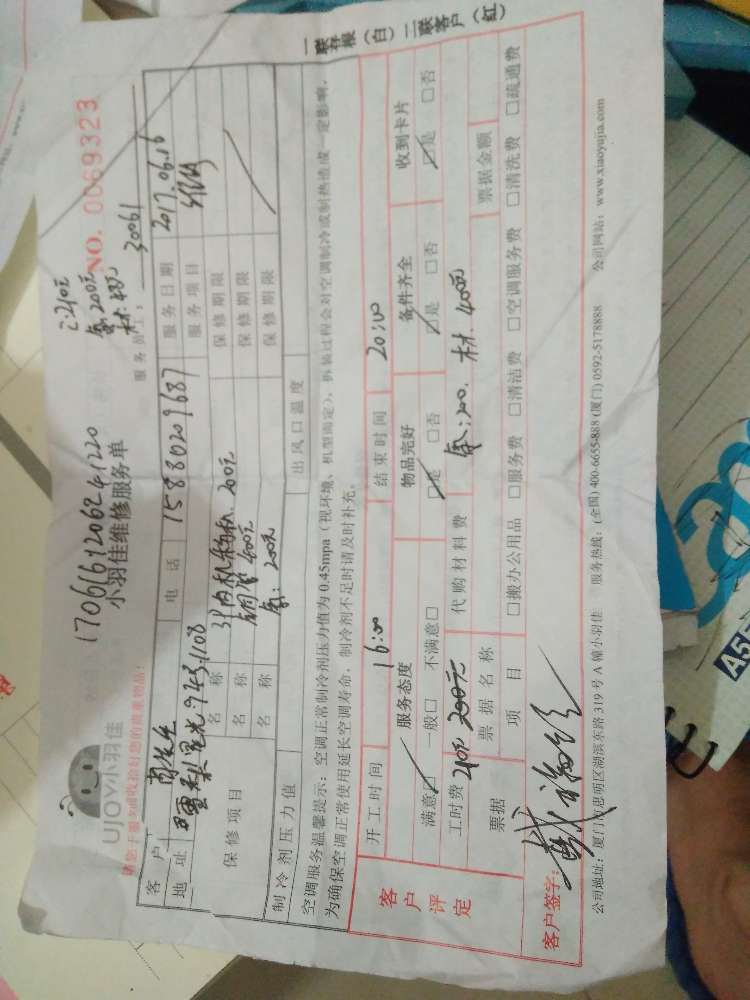 1706161206241220
工:210元
氟:200元
材:400元
UJOY小羽佳
小羽佳维修服务单
NO. 0069323
请您于服务前收拾好您的贵重物品!
服务员工: 30061
客户 先生 电话 15880209687 服务日期 2017.06.16
地址 服务项目 维修
保修项目 名称 200元 保修期限
名称 铜管 400元 保修期限
名称 氟: 200元 保修期限
制冷剂压力值 出风口温度
空调服务温馨提示: 空调正常制冷剂压力值为0.45mpa (视环境、机型而定), 拆装过程会对空调制冷或制热造成一定影响,
为确保空调正常使用延长空调寿命, 制冷剂不足时请及时补充。
客户评定
开工时间 16:00 结束时间 20:00
服务态度 物品完好 备件齐全 收到卡片
满意☑ 一般□ 不满意□ ☑是 □否 ☑是 □否 ☑是 □否
工时费 210元 200元 代购材料费 氟:200. 材. 400元
票据 票据名称 票据金额
项目 □搬办公用品 □服务费 □清洁费 □空调服务费 □清洗费 □疏通费
客户签字:
公司地址: 厦门市思明区湖滨东路319号A幢小羽佳 服务热线: (全国) 400-6655-888 (厦门) 0592-5178888 公司网站: www.xiaoyujia.com
一联存根 (白) 二联客户 (红)
A5